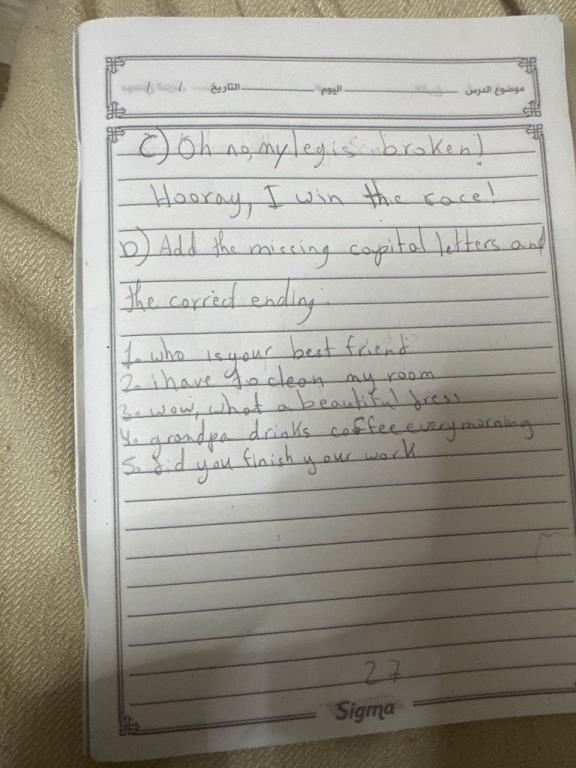 موضوع الدرس اليوم التاريخ / /
C) Oh no, my leg is broken!
Hooray, I win the race!
D) Add the missing capital letters and
the correct ending.
1. who is your best friend
2. i have to clean my room
3. wow, what a beautiful dress
4. grandpa drinks coffee every morning
5. did you finish your work
27
Sigma